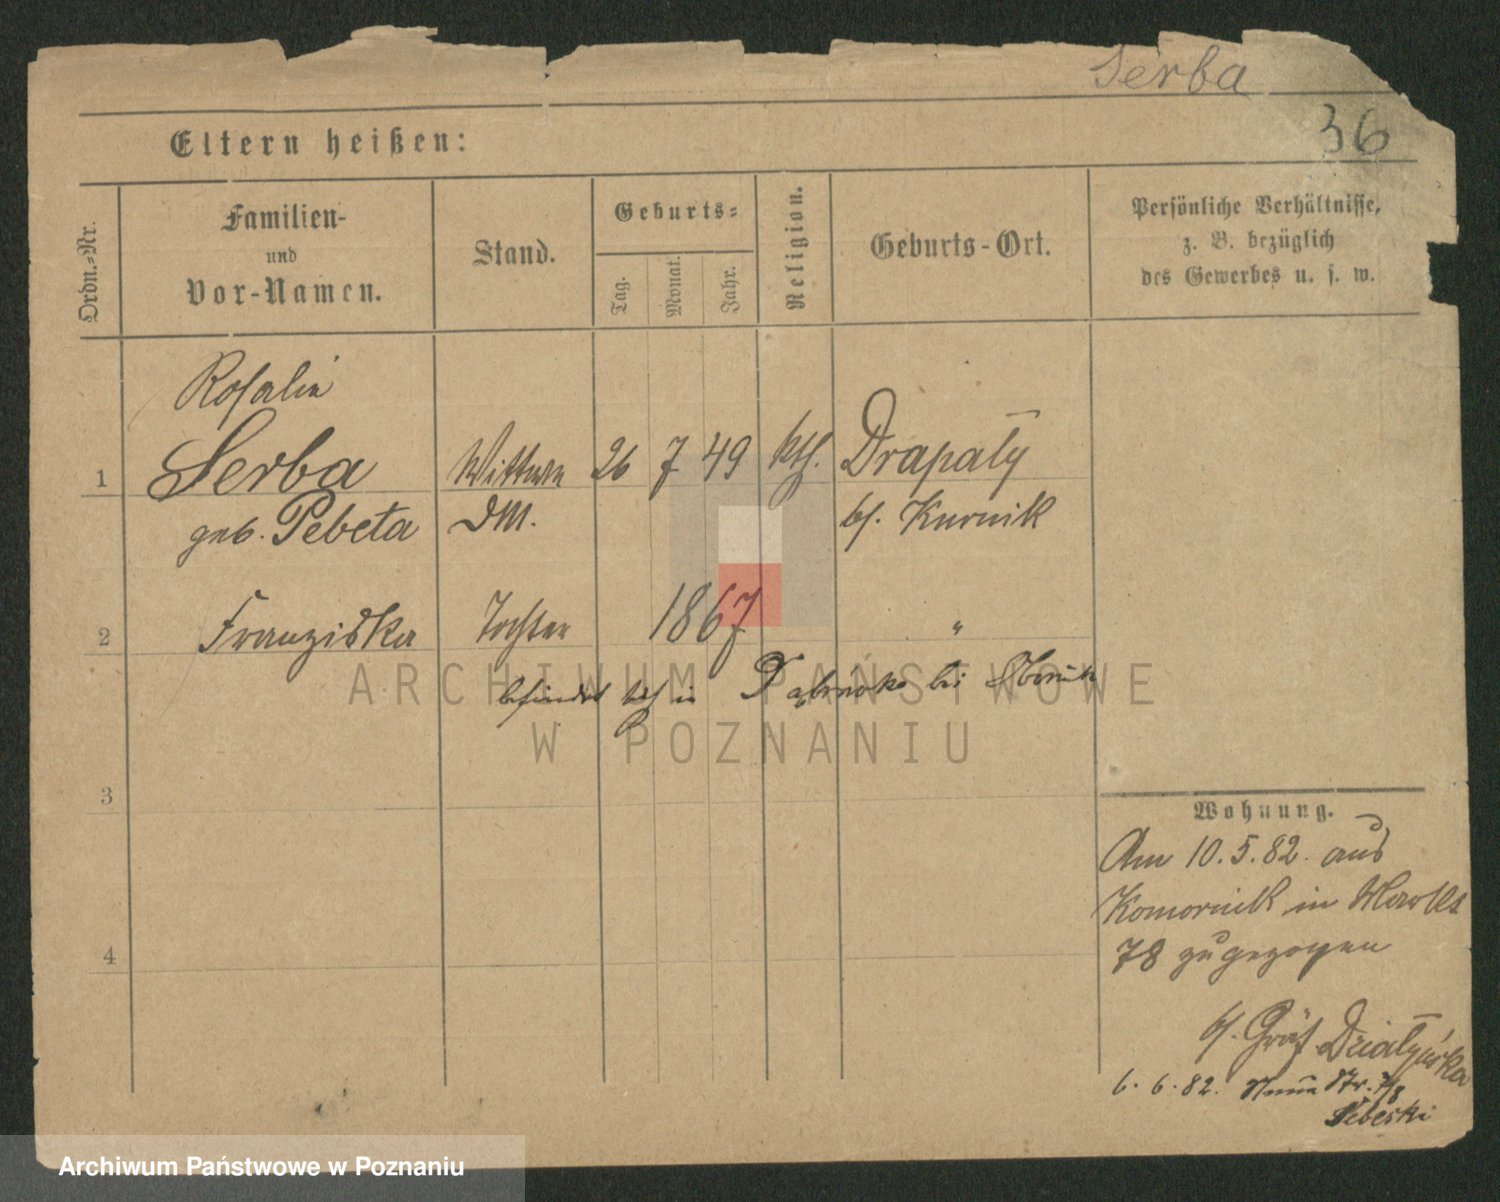 Serba
36
Eltern heißen:
Ordn.-Nr.
Familien-
und
Vor-Namen.
Stand.
Geburts-
Tag.
Monat.
Jahr.
Religion.
Geburts-Ort.
Persönliche Verhältnisse,
z. B. bezüglich
des Gewerbes u. s. w.
Rosalie
1 Serba Wittwe 26 7 49 kth. Drapały
geb. Pebeta DM. b/. Kurnik
2 Franziska Tochter 1867 "
befindet sich in bei
ARCHIWUM PAŃSTWOWE
W POZNANIU
3
4
Wohnung.
Am 10.5.82. aus
Komornik in
78 zugezogen
b/. Gräf. Działyńska
6.6.82. Neue Str. 7/8
Archiwum Państwowe w Poznaniu